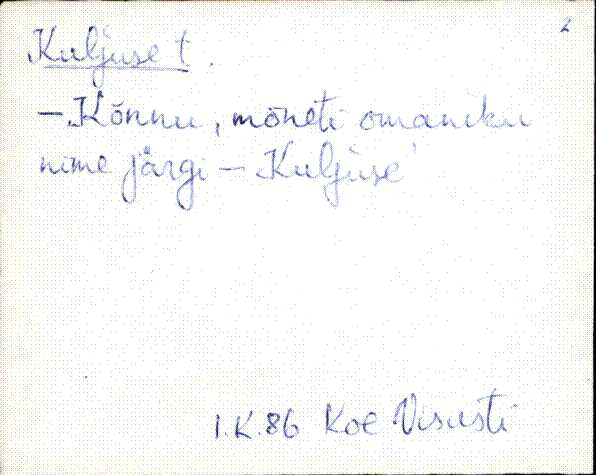 2
Kuljuse t.
– Kõnnu, mõneti omaniku
nime järgi – Kuljuse
I.K.86 Koe Visusti